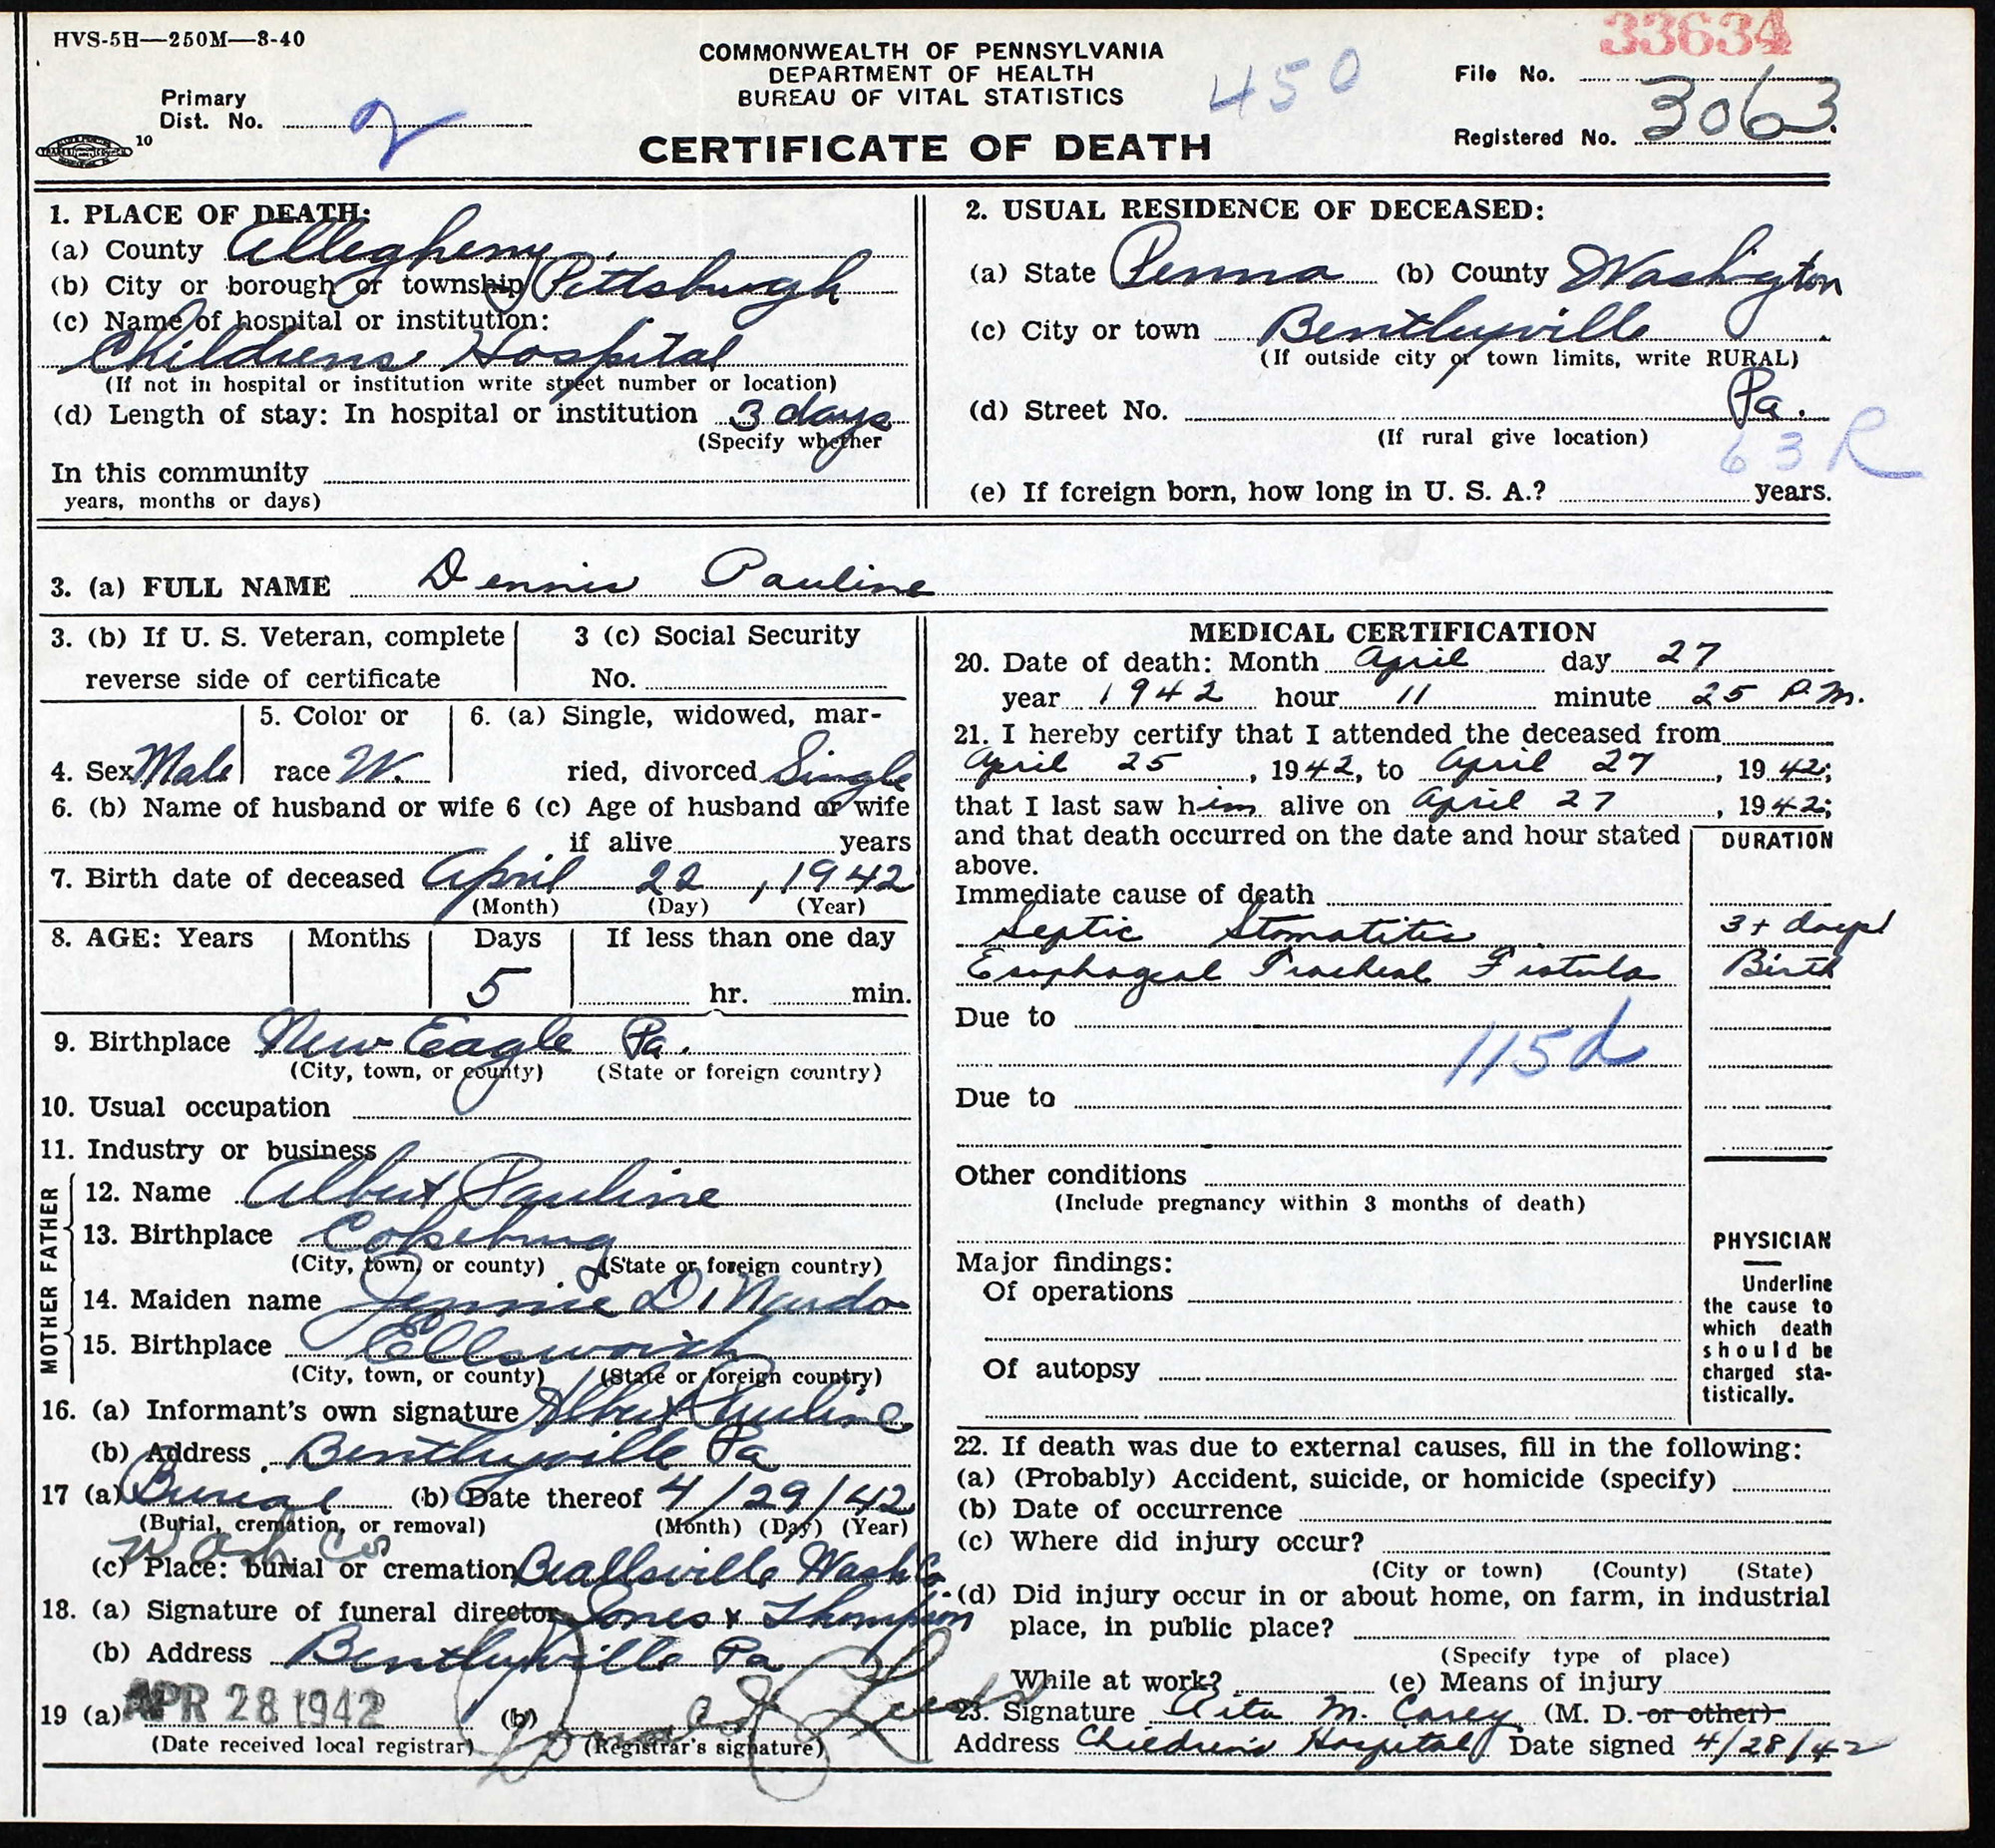 HVS-5H—250M—8-40
33634
COMMONWEALTH OF PENNSYLVANIA
DEPARTMENT OF HEALTH
BUREAU OF VITAL STATISTICS
450
File No.
Primary
Dist. No. 2
10
CERTIFICATE OF DEATH
Registered No. 3063
1. PLACE OF DEATH:
(a) County Allegheny
(b) City or borough or township Pittsburgh
(c) Name of hospital or institution:
Childrens Hospital
(If not in hospital or institution write street number or location)
(d) Length of stay: In hospital or institution 3 days
(Specify whether
In this community
years, months or days)
2. USUAL RESIDENCE OF DECEASED:
(a) State Penna (b) County Washington
(c) City or town Bentleyville
(If outside city or town limits, write RURAL)
(d) Street No. Pa.
(If rural give location)
63R
(e) If foreign born, how long in U. S. A.? years.
3. (a) FULL NAME Dennis Pauline
3. (b) If U. S. Veteran, complete
reverse side of certificate
3 (c) Social Security
No.
4. Sex Male
5. Color or
race W.
6. (a) Single, widowed, mar-
ried, divorced Single
6. (b) Name of husband or wife 6 (c) Age of husband or wife
if alive years
7. Birth date of deceased April 22, 1942
(Month) (Day) (Year)
8. AGE: Years Months Days If less than one day
5 hr. min.
9. Birthplace New Eagle Pa.
(City, town, or county) (State or foreign country)
10. Usual occupation
11. Industry or business
FATHER
12. Name Albert Pauline
13. Birthplace Cokeburg
(City, town, or county) (State or foreign country)
MOTHER
14. Maiden name Jennie DiNardo
15. Birthplace Ellsworth
(City, town, or county) (State or foreign country)
16. (a) Informant's own signature Albert Pauline
(b) Address Bentleyville Pa
17 (a) Burial (b) Date thereof 4/29/42
(Burial, cremation, or removal) (Month) (Day) (Year)
Wash Co
(c) Place: burial or cremation Beallsville Wash Co.
18. (a) Signature of funeral director Jones & Thompson
(b) Address Bentleyville Pa
19 (a) APR 28 1942 (b)
(Date received local registrar) (Registrar's signature)
MEDICAL CERTIFICATION
20. Date of death: Month April day 27
year 1942 hour 11 minute 25 P.M.
21. I hereby certify that I attended the deceased from
April 25, 1942, to April 27, 1942;
that I last saw him alive on April 27, 1942;
and that death occurred on the date and hour stated
above.
DURATION
Immediate cause of death
Septic Stomatitis 3+ days
Esophageal Tracheal Fistula Birth
Due to
115d
Due to
Other conditions
(Include pregnancy within 3 months of death)
Major findings:
Of operations
Of autopsy
PHYSICIAN
Underline
the cause to
which death
should be
charged sta-
tistically.
22. If death was due to external causes, fill in the following:
(a) (Probably) Accident, suicide, or homicide (specify)
(b) Date of occurrence
(c) Where did injury occur?
(City or town) (County) (State)
(d) Did injury occur in or about home, on farm, in industrial
place, in public place?
(Specify type of place)
While at work? (e) Means of injury
23. Signature Rita M. Casey (M. D. or other)
Address Children's Hospital Date signed 4/28/42